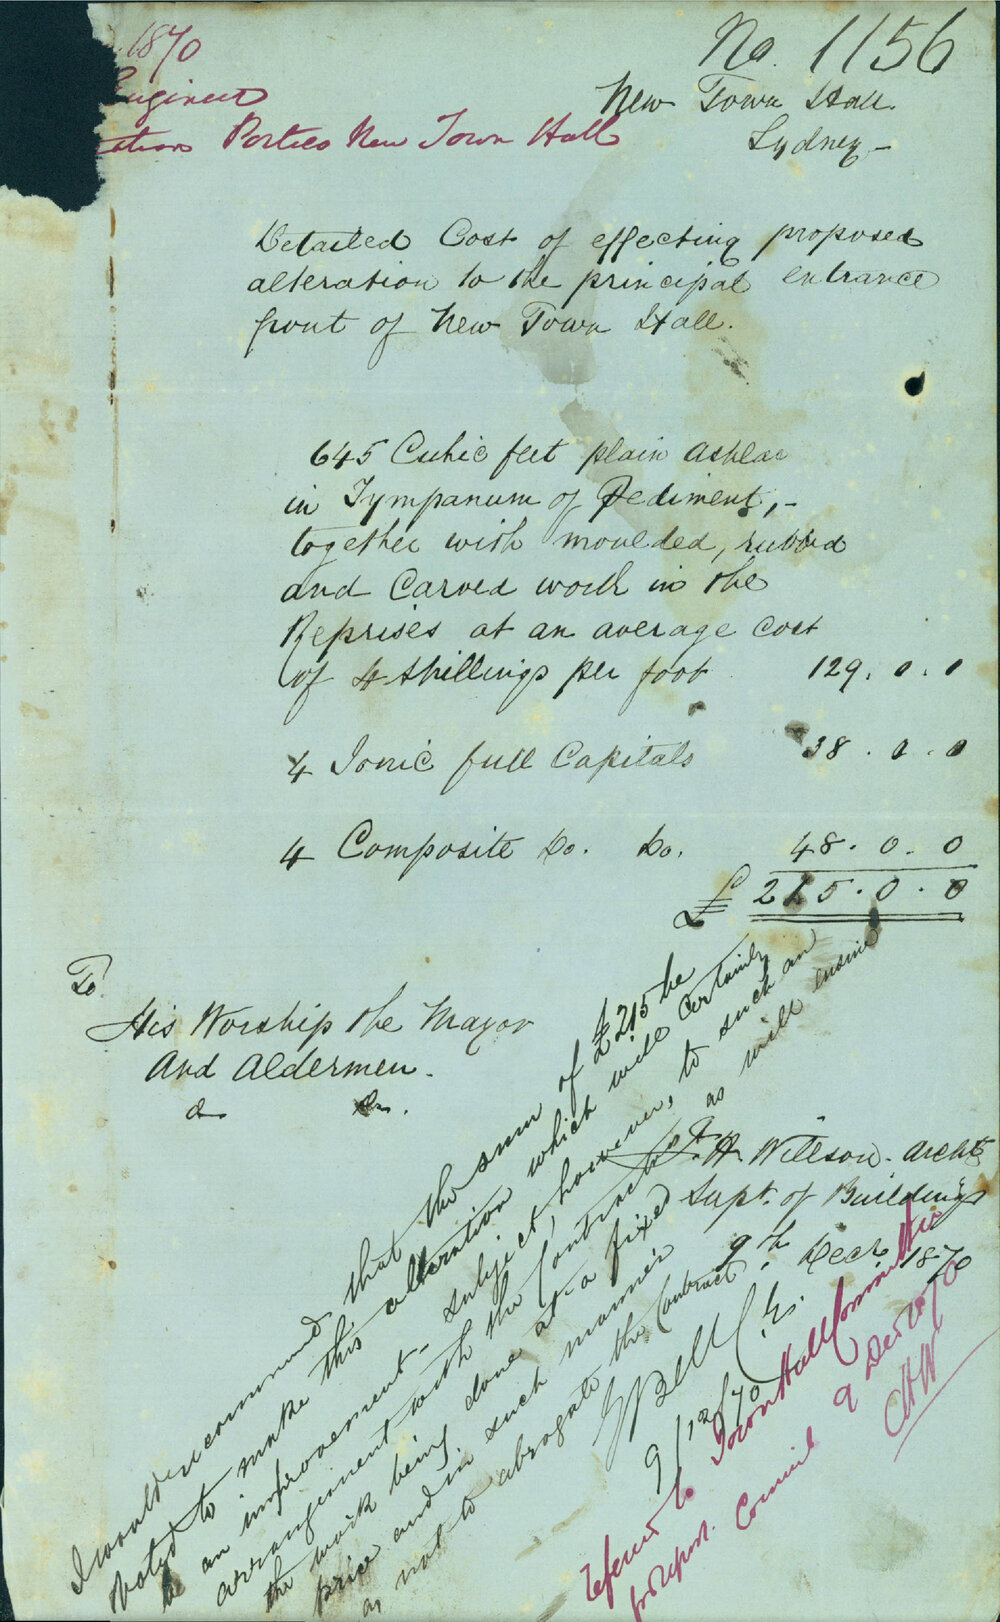 1870
Engineer
Portico New Town Hall
No. 1156
New Town Hall.
Sydney –
Detailed Cost of effecting proposed
alteration to the principal entrance
front of New Town Hall.
645 Cubic feet plain ashlar
in Tympanum of Pediment, –
together with moulded, rubbed
and Carved work in the
Reprises at an average cost
of 4 shillings per foot 129.0.0
4 Ionic full Capitals 38.0.0
4 Composite Do. Do. 48.0.0
£ 215.0.0
To
His Worship the Mayor
And Aldermen.
&c &c.
J. H. Willson. Archt
Supt. of Buildings
9th Decr. 1870
I would recommend that the sum of £215 be
voted to make this alteration which will certainly
be an improvement – subject, however, to such an
arrangement with the Contractor as will ensure
the work being done at a fixed
price and in such manner
as not to abrogate the Contract.
E Bell C.E.
9/12/70
Referred to Town Hall Committee
for Report. Council 9 Dec 1870
CHW